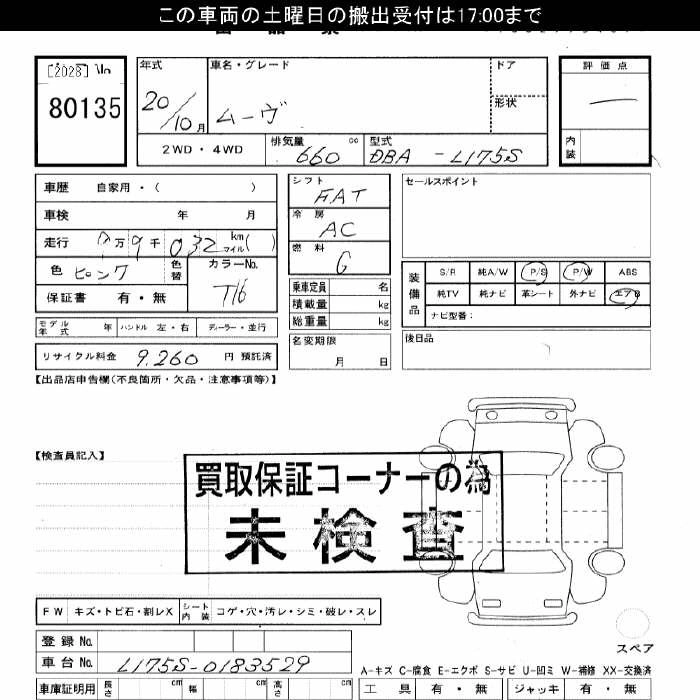 この車両の土曜日の搬出受付は17:00まで
[2028] No
80135
年式 車名・グレード ドア 評価点
20/10月 ムーヴ 形状
内装
2WD・4WD 排気量 660 cc 型式 DBA - L175S
車歴 自家用・( )
車検 年 月
走行 万 9千 032 km マイル( )
色 ピンク 色替 カラーNo. T16
保証書 有・無
モデル年式 年 ハンドル 左・右 ディーラー・並行
リサイクル料金 9,260 円 預託済
シフト FAT
冷房 AC
燃料 G
乗車定員 名
積載量 kg
総重量 kg
名変期限 月 日
セールスポイント
装備品
S/R 純A/W P/S P/W ABS
純TV 純ナビ 革シート 外ナビ エアB
ナビ型番:
後日品
【出品店申告欄(不良箇所・欠品・注意事項等)】
【検査員記入】
買取保証コーナーの為
未検査
FW キズ・トビ石・割レX シート内装 コゲ・穴・汚レ・シミ・破レ・スレ
登録No.
車台No. L175S-0183529
スペア
A-キズ C-腐食 E-エクボ S-サビ U-凹ミ W-補修 XX-交換済
車庫証明用 長さ cm 幅 cm 高さ cm 工具 有・無 ジャッキ 有・無